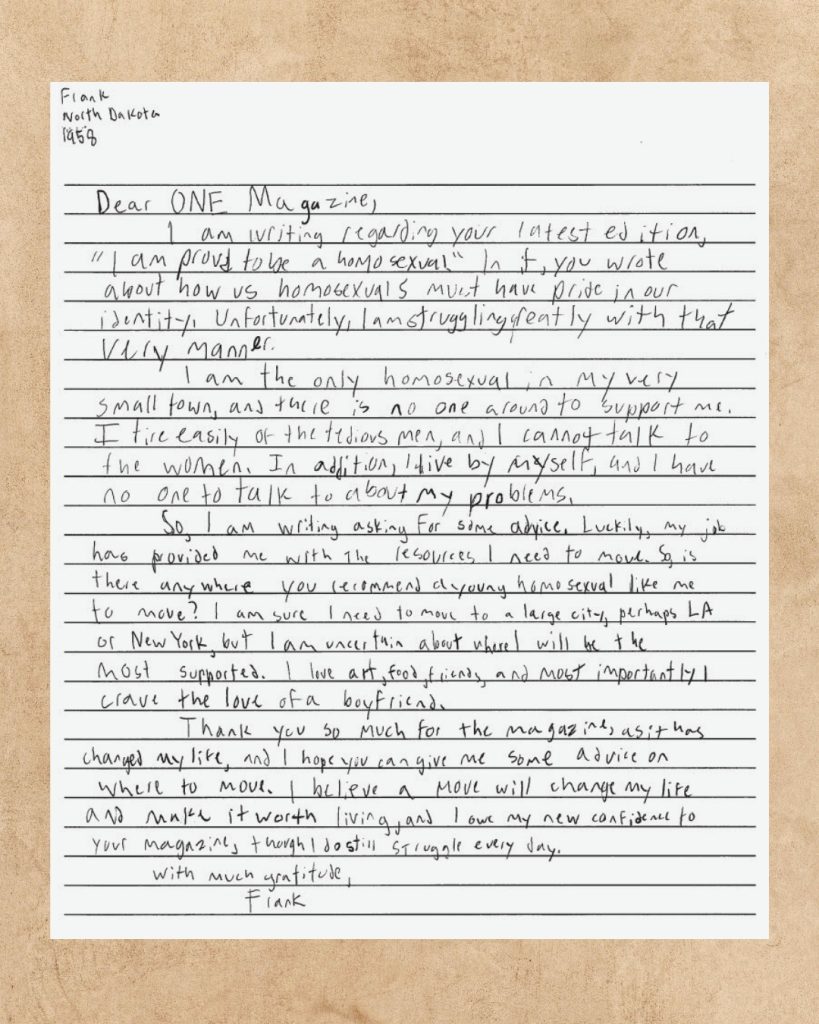 Frank
North Dakota
1958
Dear ONE Magazine,
I am writing regarding your latest edition,
"I am proud to be a homosexual." In it, you wrote
about how us homosexuals must have pride in our
identity. Unfortunately, I am struggling greatly with that
very manner.
I am the only homosexual in my very
small town, and there is no one around to support me.
I tire easily of the tedious men, and I cannot talk to
the women. In addition, I live by myself, and I have
no one to talk to about my problems.
So, I am writing asking for some advice. Luckily, my job
has provided me with the resources I need to move. So, is
there anywhere you recommend a young homosexual like me
to move? I am sure I need to move to a large city, perhaps LA
or New York, but I am uncertain about where I will be the
most supported. I love art, food, friends, and most importantly I
crave the love of a boyfriend.
Thank you so much for the magazine, as it has
changed my life, and I hope you can give me some advice on
where to move. I believe a move will change my life
and make it worth living, and I owe my new confidence to
your magazine, though I do still struggle every day.
With much gratitude,
Frank